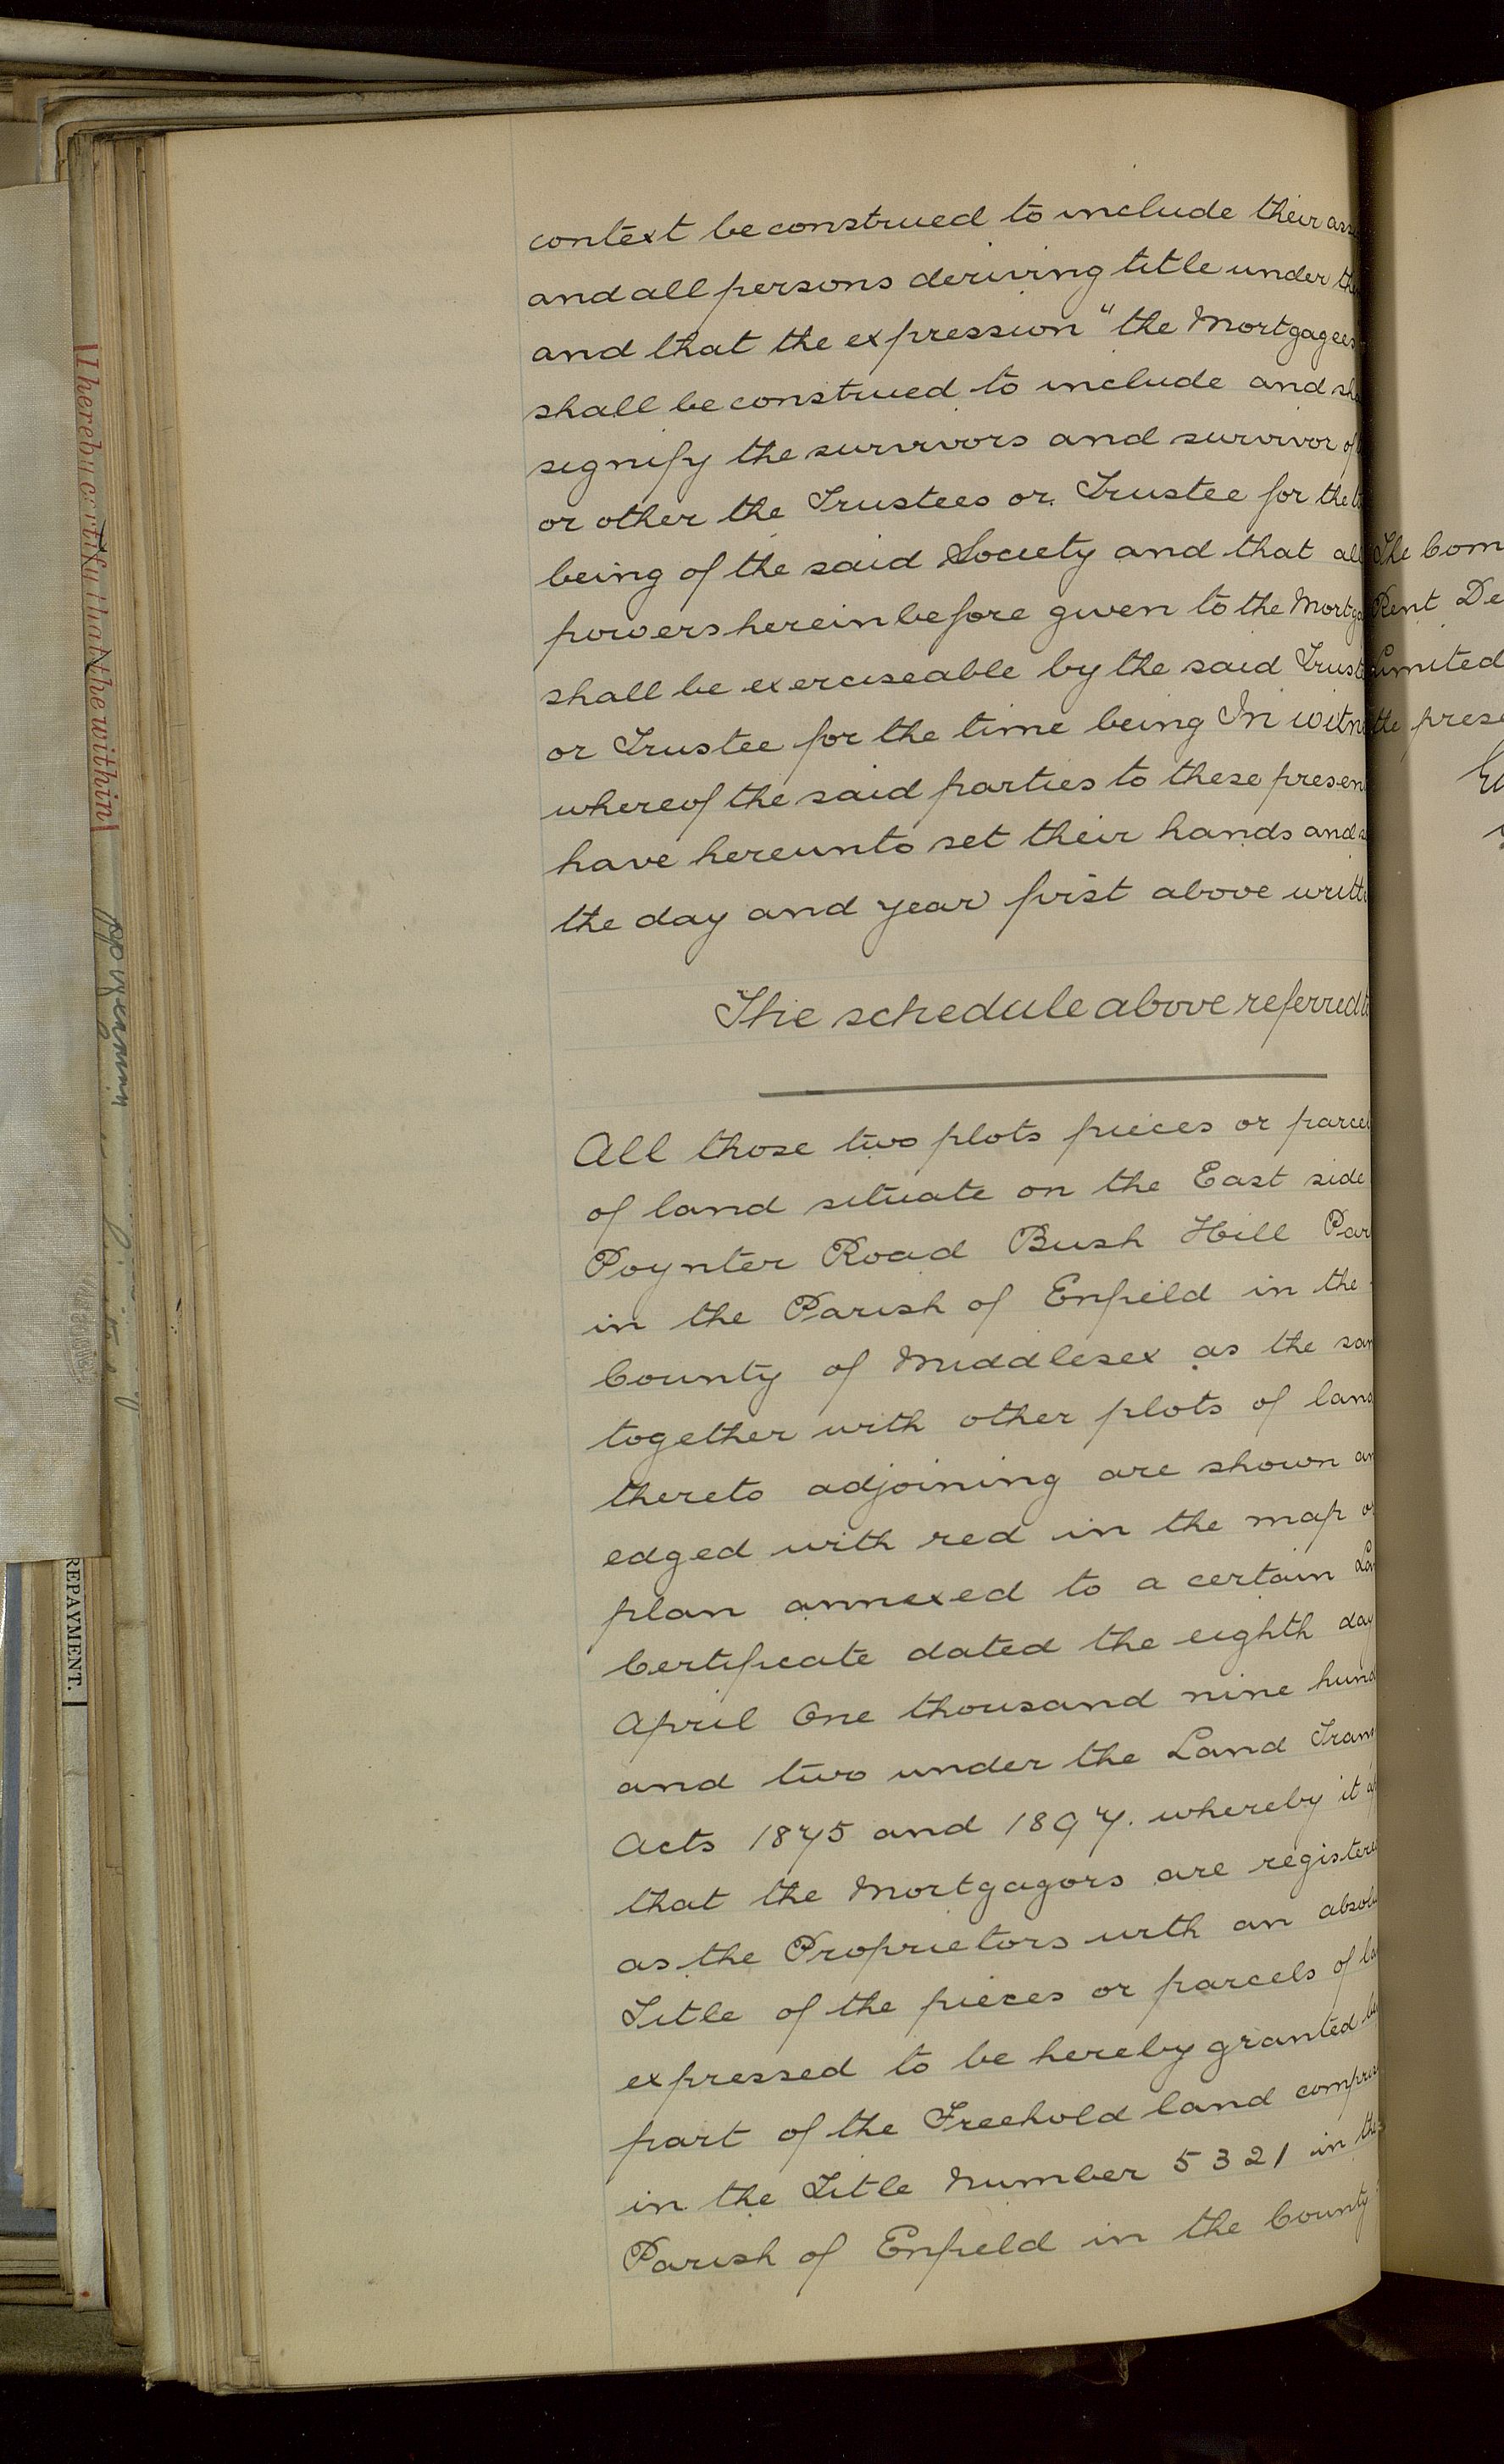 context be construed to include their ass
and all persons deriving title under the
and that the expression "the Mortgagees
shall be construed to include and sha
signify the survivors and survivor of
or other the Trustees or Trustee for the t
being of the said Society and that all
powers hereinbefore given to the Mortga
shall be exerciseable by the said Truste
or Trustee for the time being In witne
whereof the said parties to these presen
have hereunto set their hands and s
the day and year first above writte
The schedule above referred t
All those two plots pieces or parcel
of land situate on the East side
Poynter Road Bush Hill Par
in the Parish of Enfield in the
County of Middlesex as the sam
together with other plots of land
thereto adjoining are shown an
edged with red in the map or
plan annexed to a certain Lan
Certificate dated the eighth day
April One thousand nine hund
and two under the Land Trans
Acts 1875 and 1897. whereby it ap
that the Mortgagors are registere
as the Proprietors with an absolu
Title of the pieces or parcels of la
expressed to be hereby granted be
part of the Freehold land compris
in the Title Number 5321 in the
Parish of Enfield in the County
The Com
Rent De
Limited
the prese
I hereby certify that the within
REPAYMENT.